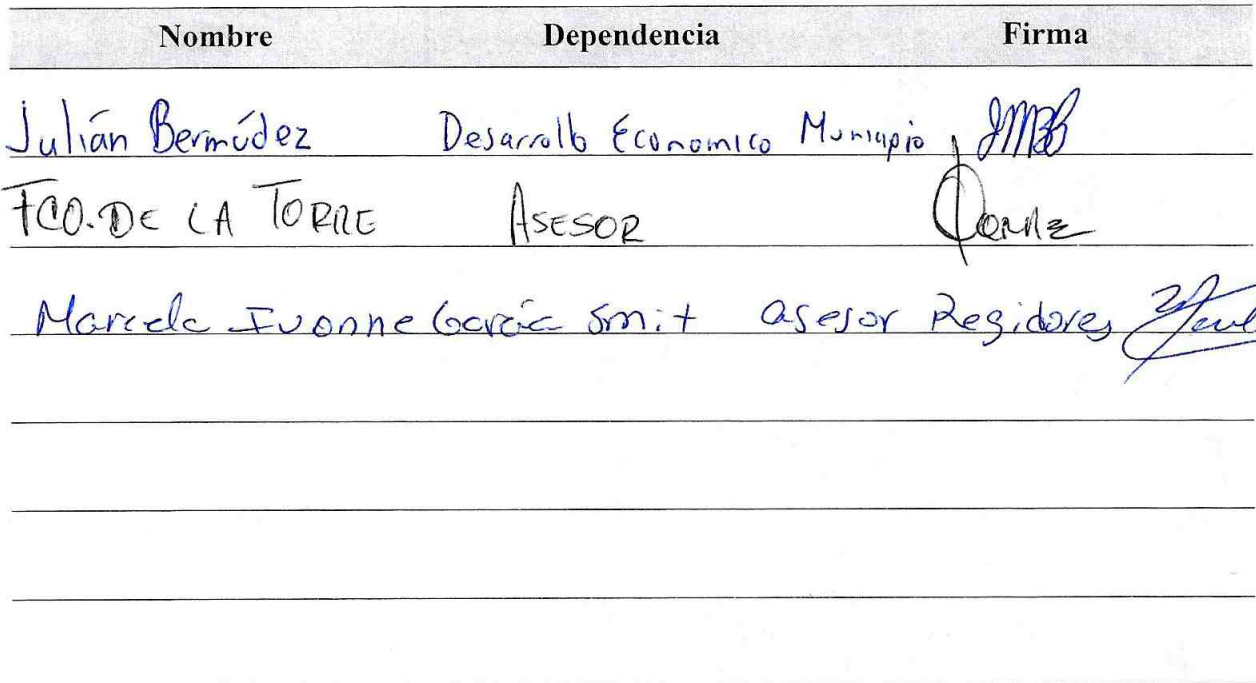 Nombre Dependencia Firma
Julián Bermúdez Desarrollo Económico Municipio
FCO. DE LA TORRE ASESOR
Marcela Ivonne García Smit asesor Regidores